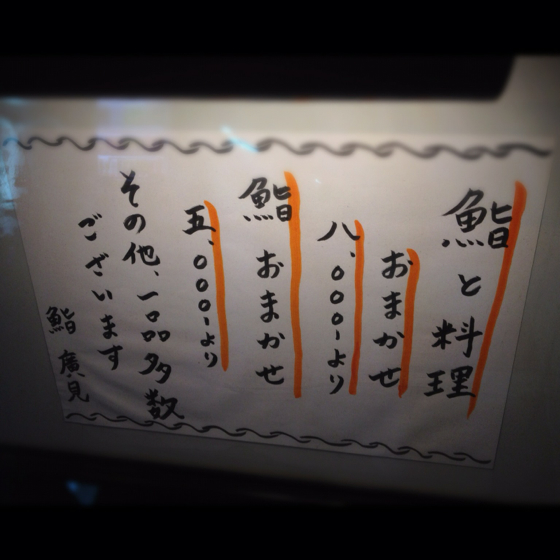 鮨と料理
おまかせ
八、〇〇〇-より
鮨おまかせ
五、〇〇〇-より
その他、一品多数
ございます
鮨廣見